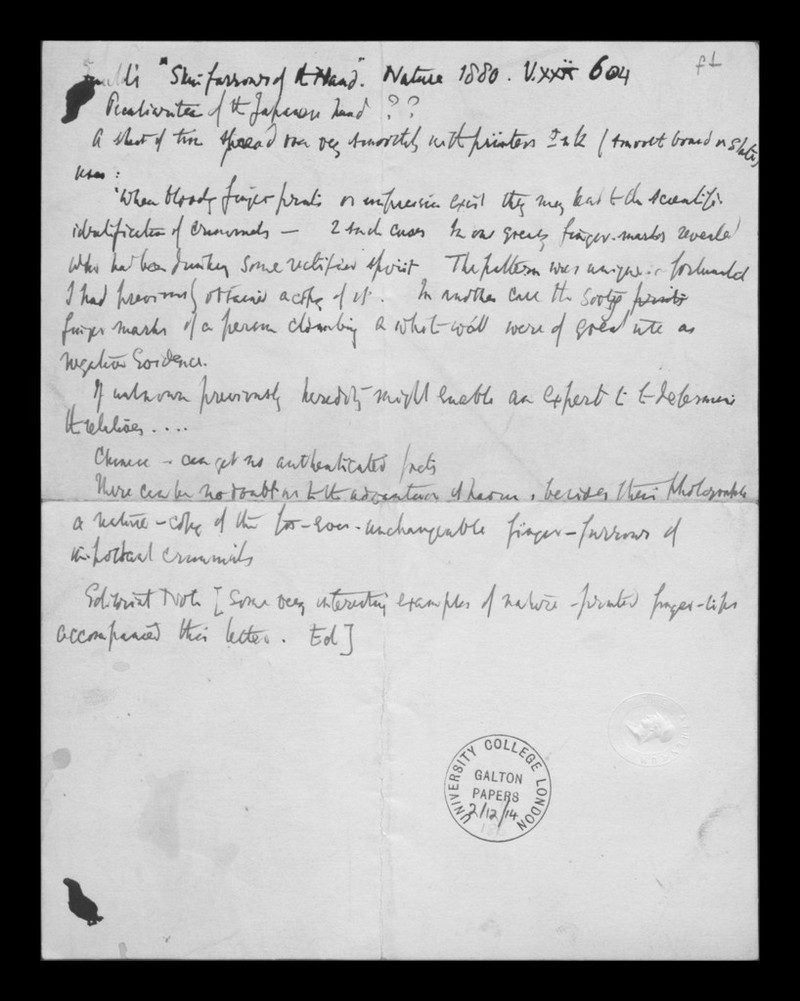 f1
"Skin furrows of the Hand". Nature 1880. V.xxii 604
Peculiarities of the Japanese hand ??
A sheet of tin spread over very smoothly with printers Ink (smooth board or slate)
"When bloody finger prints or impressions exist they may lead to the scientific
identification of criminals — 2 such cases In one greasy finger-marks revealed
who had been drinking some rectified spirit The pattern was unique & fortunately
I had previously obtained a copy of it. In another case the sooty prints
finger marks of a person climbing a white wall were of great use as
negative Evidence.
If unknown previously heredity might enable an expert to determine
the relatives....
Chinese - can get no authenticated facts
There can be no doubt as to the advantage of having, besides their Photographs
a nature-copy of the for-ever-unchangeable finger-furrows of
important criminals
Editorial Note [Some very interesting examples of nature-printed finger-tips
accompanied this letter. Ed]
UNIVERSITY COLLEGE LONDON
GALTON
PAPERS
2/12/14